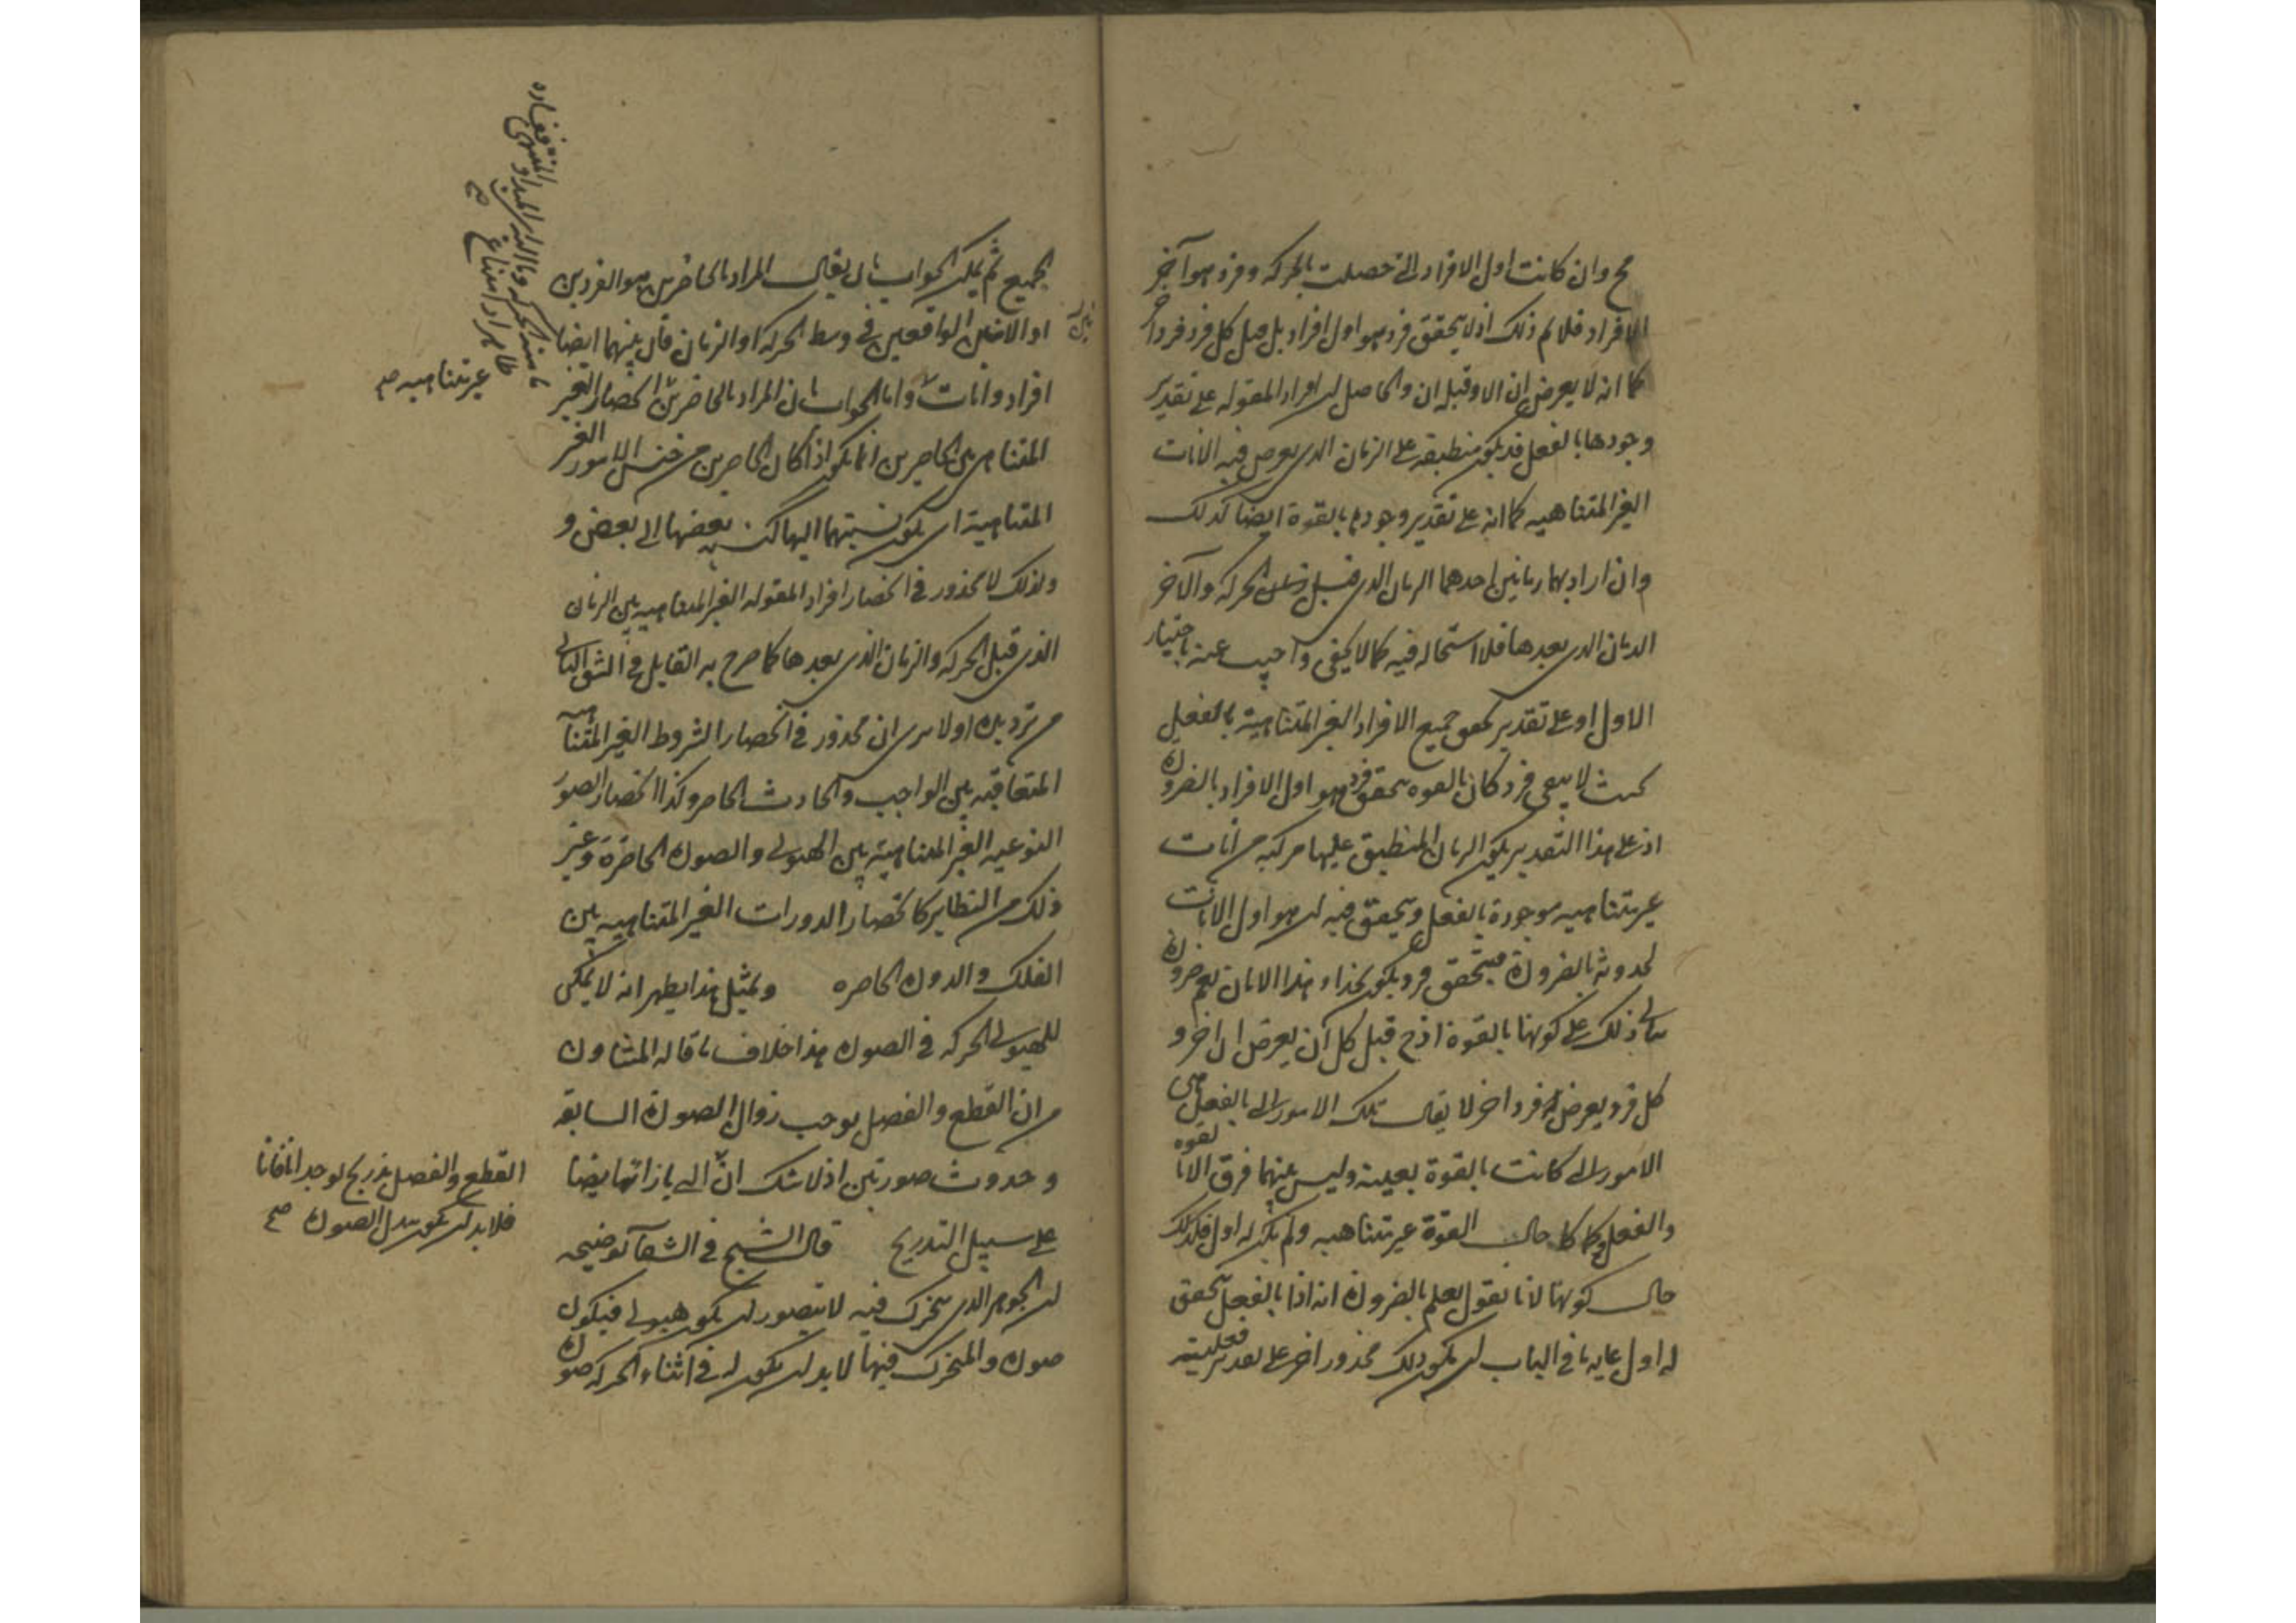 مح وان كانت اول الافراد التى حصلت بالحركه وفرد هو آخر
الافراد فلا لم ذلك اذ لا يتحقق فرد هو اول افراد بل قبل كل فرد فردا
كما انه لا يعرض ان الا وقبله ان والحاصل ان افراد المقوله على تقدير
وجودها بالفعل قد يكون منطبقه على الزمان الذى يعرض فيه الانات
الغير المتناهيه كما انه على تقدير وجودها بالقوة ايضا كذلك
وان اراد بهما زمانين احدهما الزمان الذى قبل زمان الحركه والآخر
الزمان الذى بعدها فلا استحاله فيه كما لا يخفى واجيب عنه باختيار
الاول او على تقدير تحقق جميع الافراد الغير المتناهية بالفعل
بحيث لا يبقى فرد كان بالقوه يتحقق فرد هو اول الافراد بالضرورة
اذ على هذا التقدير يكون الزمان المنطبق عليها مركبه من انات
غير متناهيه موجودة بالفعل ويتحقق فيه ان هو اول الانات
لحدوثه بالضرورة فيتحقق فرد يكون بحذاء هذا الان
ذلك على كونها بالقوة اذ ح قبل كل آن يعرض ان اخر و
كل فرد يعرض فرد اخر لا يقال تلك الامور التى بالفعل هى
الامور التى كانت بالقوة بعينه وليس بينهما فرق الا بالقوه
والفعل وكما كا حال القوة غير متناهيه ولم يكن له اول فكذلك
حال كونها لانا نقول نعلم بالضرورة انه اذا بالفعل تحقق
له اول غايه ما فى الباب ان يكون ذلك محذور اخر على تقدير فعليته
الجميع ثم يمكن الجواب بان يقال المراد بالحاضرين هو الفردين
او الانين الواقعين فى وسط الحركه او الزمان فان بينهما ايضا
افراد وانات واما الجواب بان المراد بالحاضرين انحصار الغير
المتناهى بين الحاصرين انما يكون اذا كان الحاصرين من جنس الامور الغير
المتناهية اى يكون نسبتهما اليها كنسبه بعضها الى بعض و
ولذلك لا محذور فى انحصار افراد المقوله الغير المتناهيه بين الزمان
الذى قبل الحركه والزمان الذى بعدها كما صرح به القايل فى الشق الثانى
من ترديده اولا يرى ان محذور فى انحصار الشروط الغير المتناهيه
المتعاقبه بين الواجب والحادث الحاضر وكذا انحصار الصور
النوعيه الغير المتناهية بين الهيولى والصورة الحاضرة وغير
ذلك من النظاير كانحصار الدورات الغير المتناهيه بين
الفلك والدورة الحاضره وبمثل هذا يظهر انه لا يمكن
للهيولى الحركه فى الصورة هذا خلاف ما قاله المشاون
من ان القطع والفصل يوجب زوال الصورة السابقه
وحدوث صورتين اذ لا شك ان التى بازائها ايضا
على سبيل التدريج قال الشيخ فى الشفآ توضيحه
ان الجوهر الذى يتحرك فيه لا يتصور ان يكون هيولى فيكون
صورة والمتحرك فيها لا بد ان يكون له فى اثناء الحركه صورة
بين
ما منه الحركه وما اليه اى المبداء والمنتهى
ظاهرا امتناع صح
غير متناهيه صح
القطع والفصل بتدريج يوجد انا فانا
فلا بد ان يكون تبدل الصورة صح